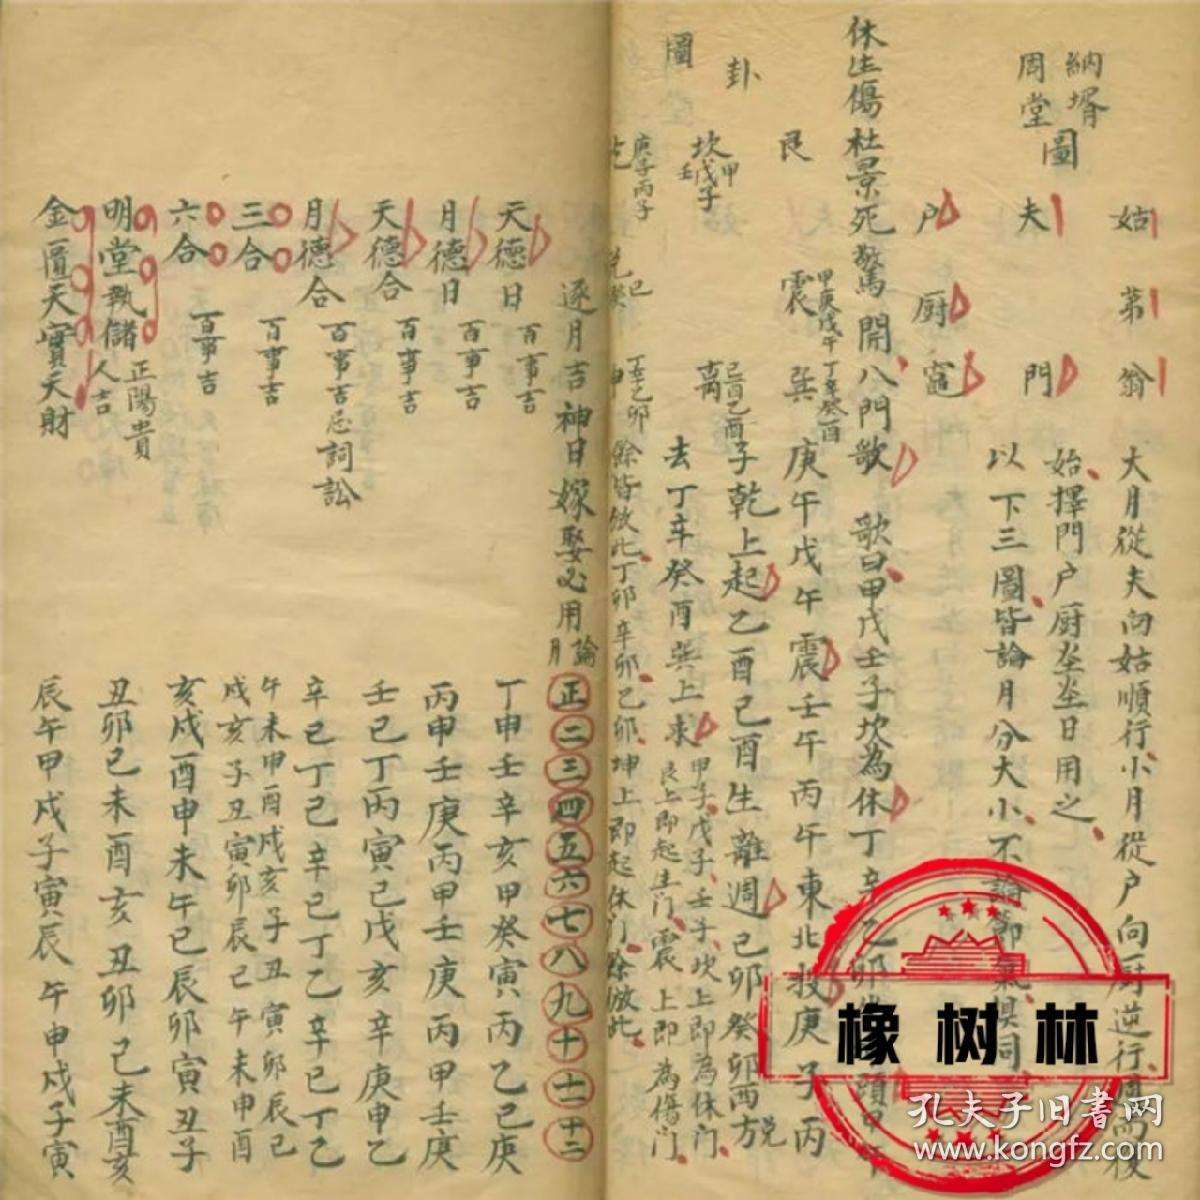 納壻
周堂圖
姑 弟 翁
夫 門
户 厨 竈
大月從夫向姑順行小月從户向厨逆行
始擇門户厨坐坐日用之
以下三圖皆論月分大小不論節氣俱同
休生傷杜景死驚開八門歌 歌曰甲戊壬子坎為休丁辛乙卯
卦
圖
艮 震 巽
甲庚戊午
丁辛癸酉
庚午戊午震壬午丙午東北投庚子丙
坎
甲戊子
壬
離
己酉乙酉
子乾上起乙酉己酉生離週己卯癸卯西方兑
去丁辛癸酉巽上求
甲子戊子壬子坎上即為休门
艮上即起生门震上即為傷门
庚子丙子
丁辛乙卯
餘皆倣此丁卯辛卯己卯坤上即起休门餘倣此
逐月吉神日嫁娶必用 論月 正二三四五六七八九十十一十二
天德日 百事吉 丁申壬辛亥甲癸寅丙乙巳庚
月德日 百事吉 丙甲壬庚丙甲壬庚丙甲壬庚
天德合 百事吉 壬巳丁丙寅己戊亥辛庚申乙
月德合 百事吉忌詞訟 辛己丁乙辛己丁乙辛己丁乙
三合 百事吉 午未申酉戌亥子丑寅卯辰巳
戌亥子丑寅卯辰巳午未申酉
六合 百事吉 亥戌酉申未午巳辰卯寅丑子
明堂執儲 正陽貴人吉 丑卯巳未酉亥丑卯巳未酉亥
金匱天寶天財 辰午申戌子寅辰午申戌子寅
橡树林
孔夫子旧书网
www.kongfz.com